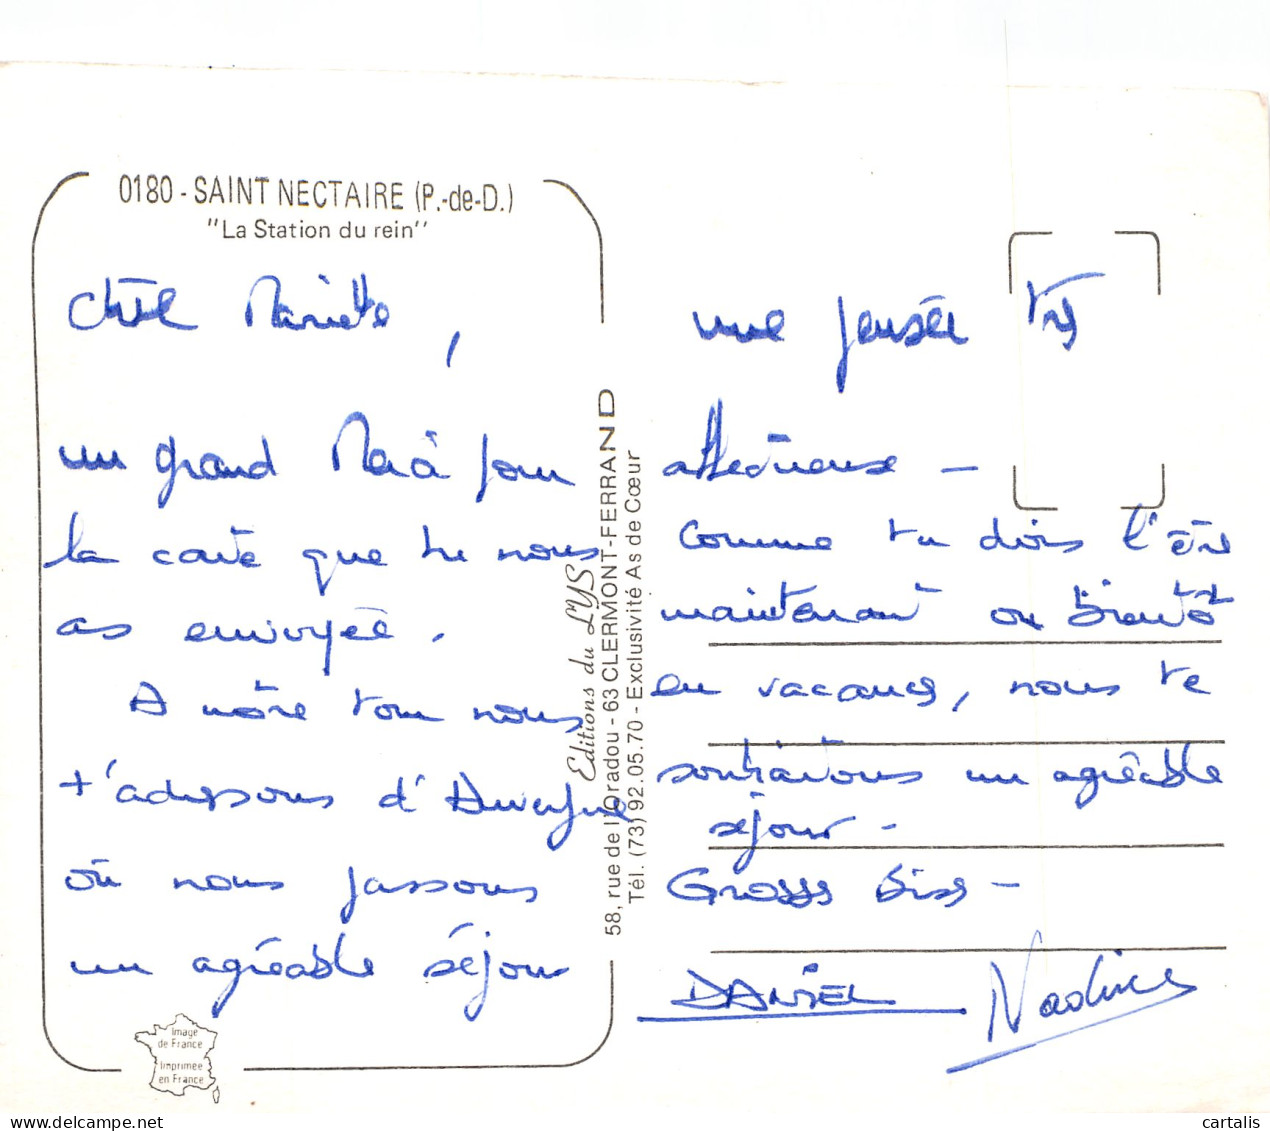 0180 - SAINT NECTAIRE (P.-de-D.)
"La Station du rein"
Chère Mariette,
un grand Merci pour
la carte que tu nous
as envoyée.
A nôtre tour nous
t'adressons d'Auvergne
où nous passons
un agréable séjour
une pensée très
affectueuse -
Comme tu dois l'être
maintenant ou bientôt
en vacances, nous te
souhaitons un agréable
séjour -
Grosses bises -
DANIEL Nadine
Editions du LYS
58, rue de l'Oradou - 63 CLERMONT-FERRAND
Tél. (73) 92.05.70 - Exclusivité As de Cœur
Image
de France
Imprimée
en France
delcampe.net
cartalis